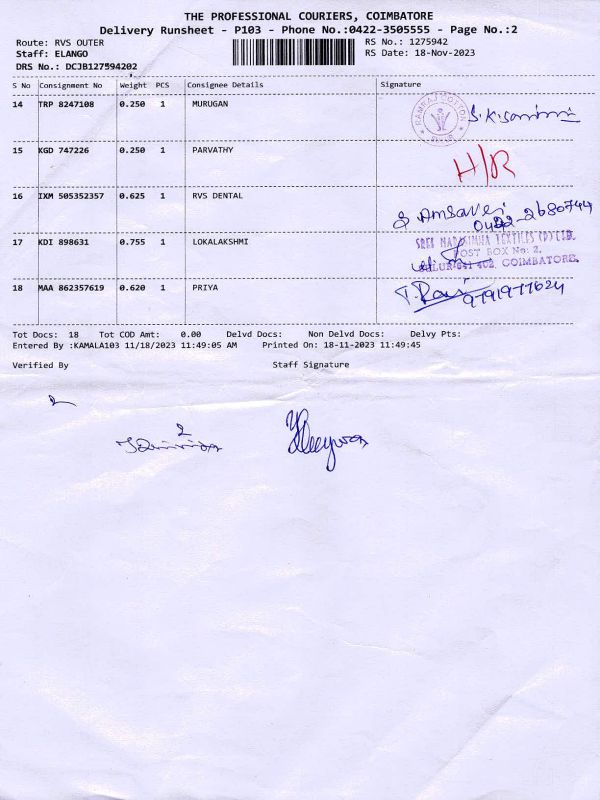 THE PROFESSIONAL COURIERS, COIMBATORE
Delivery Runsheet - P103 - Phone No.:0422-3505555 - Page No.:2
Route: RVS OUTER RS No.: 1275942
Staff: ELANGO RS Date: 18-Nov-2023
DRS No.: DCJB127594202
S No Consignment No Weight PCS Consignee Details Signature
14 TRP 8247108 0.250 1 MURUGAN
15 KGD 747226 0.250 1 PARVATHY H/R
16 IXM 505352357 0.625 1 RVS DENTAL
0422-2680744
17 KDI 898631 0.755 1 LOKALAKSHMI
POST BOX No: 2,
SULUR-641 402, COIMBATORE.
18 MAA 862357619 0.620 1 PRIYA T. Ravi 9791977624
Tot Docs: 18 Tot COD Amt: 0.00 Delvd Docs: Non Delvd Docs: Delvy Pts:
Entered By :KAMALA103 11/18/2023 11:49:05 AM Printed On: 18-11-2023 11:49:45
Verified By Staff Signature